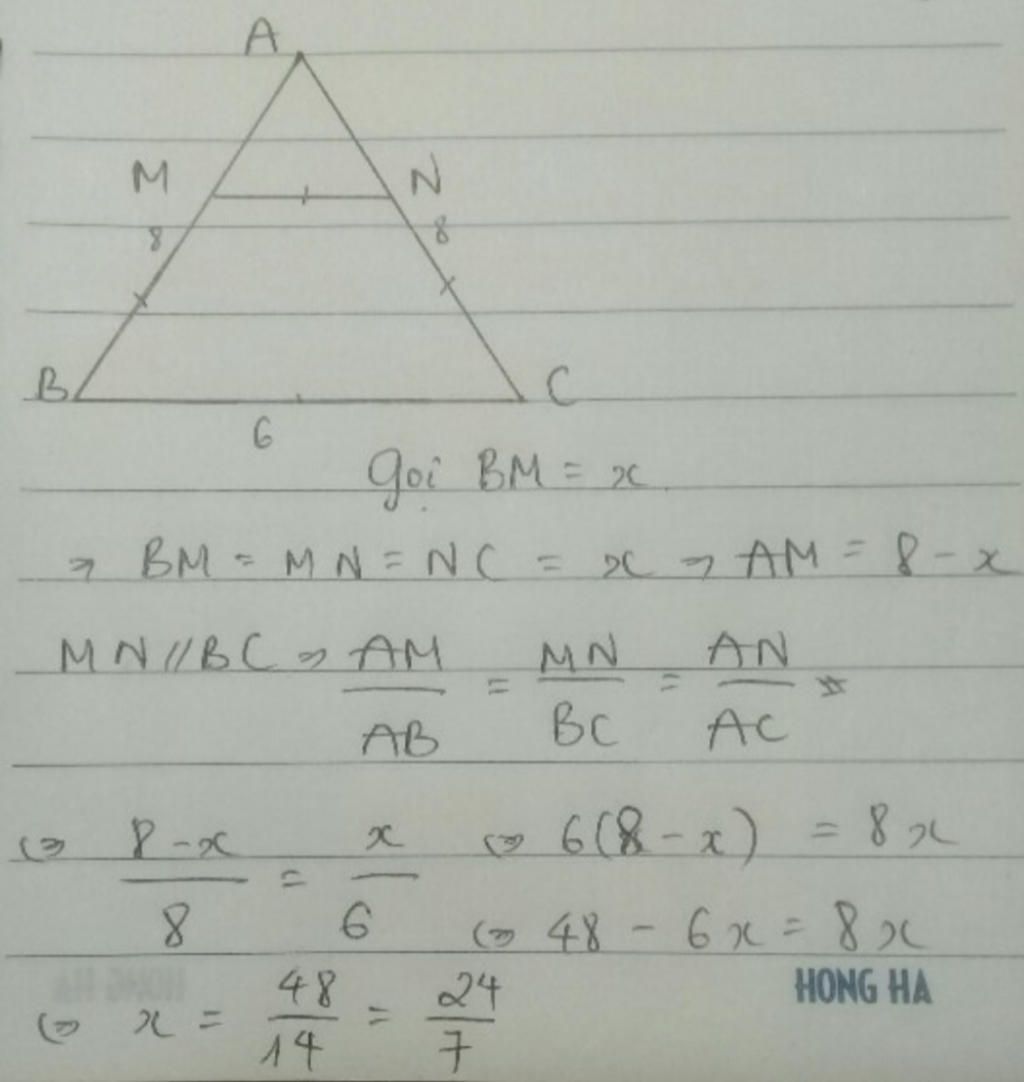 A
M N
8 8
B C
6
Gọi BM = x
⇒ BM = MN = NC = x ⇒ AM = 8 - x
MN // BC ⇒ AM/AB = MN/BC = AN/AC
⇔ 8-x/8 = x/6 ⇔ 6(8 - x) = 8x
⇔ 48 - 6x = 8x
HONG HA
⇔ x = 48/14 = 24/7